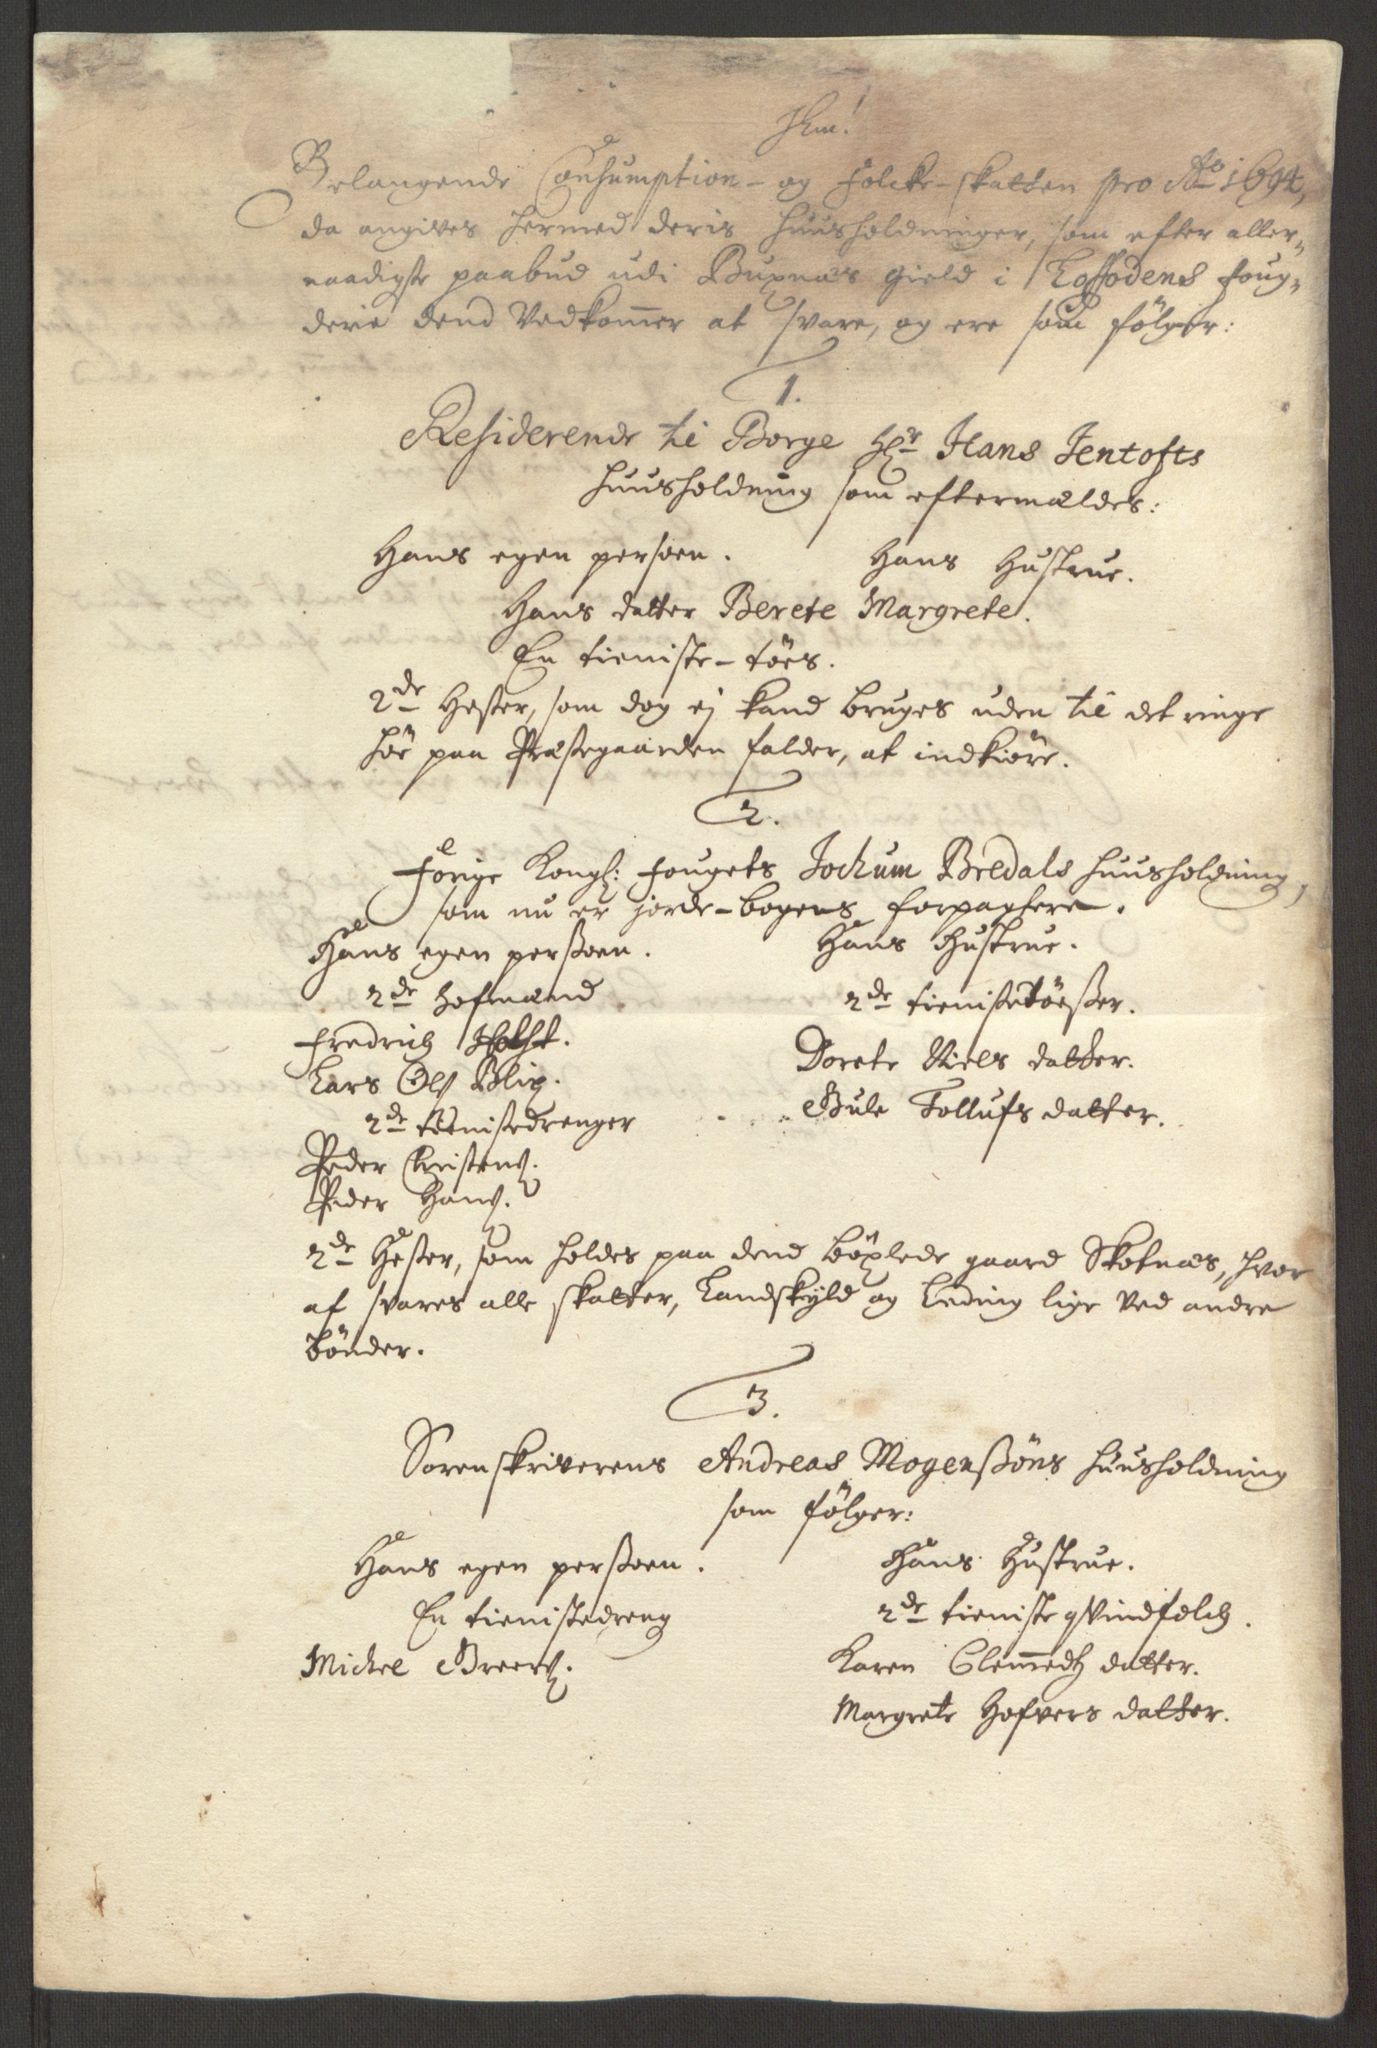 Jhm!
Belangende Consumption- og Folcke-skatten pro Ao 1694,
da angives hermed deris huusholdninger, som efter aller-
naadigste paabud udi Buxnæs gield i Loffodens foug-
derie dend Vedkommer at svare, og ere som følger:
1.
Residerende til Borge Hr Hans Jentofts
huusholdning som eftermældes:
Hans egen persoen. Hans Hustrue.
Hans datter Berete Margrete.
En tieniste-tøes.
2de Hester, som dog ej kand bruges uden til det ringe
höe paa Præstegaarden falder, at indkiøre.
2.
Forige Kongl: fougets Jochum Bredals huusholdning,
som nu er jorde-bogens forpagtere.
Hans egen perßoen. Hans Hustrue.
2de hofmænd 2de tienisteTöeßer.
Fredrich
Lars Ols Blix. Dorete Niels datter.
2de tienistedrenger Gule Tollufs datter.
Peder Christens.
Peder Hans.
2de Hester, som holdes paa dend böxlede gaard Skotnæs, hvor
af svares alle skatter, Landskyld og Leding lige Ved andre
bönder.
3.
Sorenskriverens Andreas Mogenßöns huusholdning
som følger:
Hans egen perßoen. Hans Hustrue.
En tienistedreng 2de tieniste qvindfolch.
Michel Greers. Karen Clemmedtz datter.
Margrete Hofvers datter.